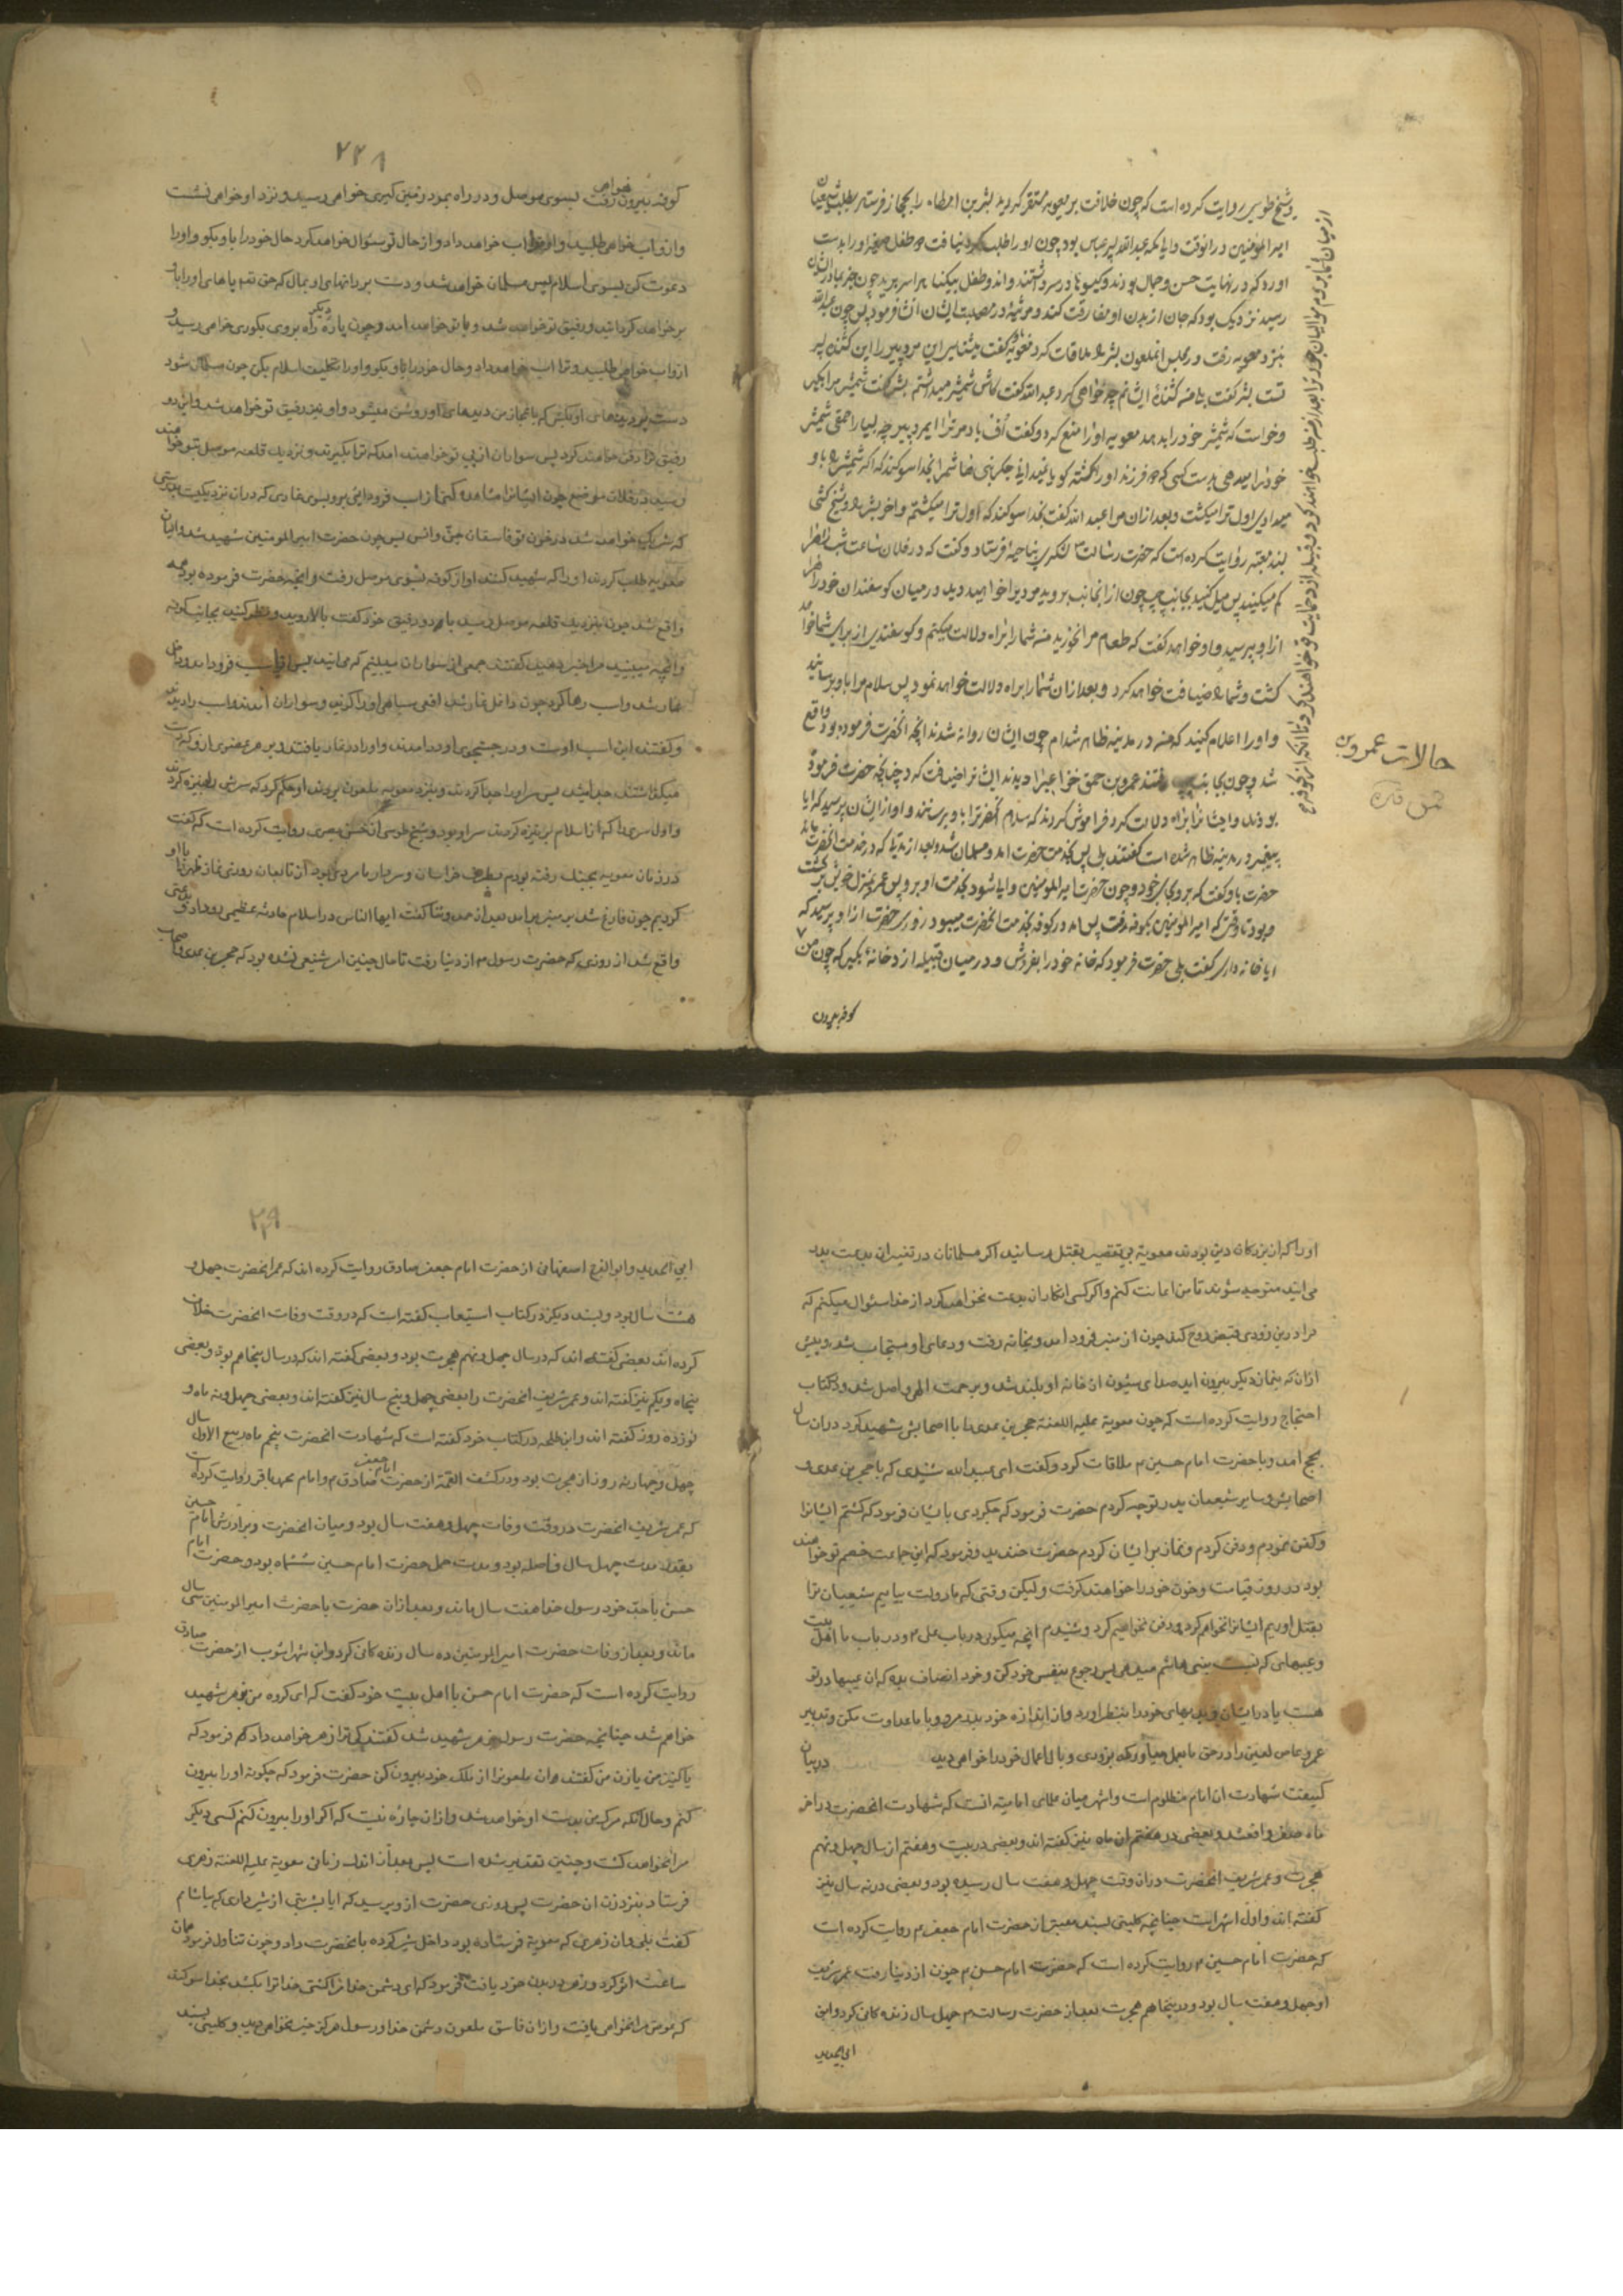 و شیخ طوسی روایت کرده است که چون خلافت بر معویه مستقر گردید بشر بن ارطاه را بحجاز فرستاد بطلب شیعیان
امیر المؤمنین در انوقت والی مکه عبد الله پسر عباس بود چون او را طلب کرد نیافت دو طفل صغیر او را بدست
اورد که در نهایت حسن و جمال بودند و کیسوها در سر داشتند و اندو طفل بیکناه را سر برید چون خبر بمادر ایشان
رسید نزدیک بود که جان از بدن او مفارقت کند و مرثیهٔ در مصیبت ایشان انشا فرمود پس چون عبد الله
بنزد معویه رفت در مجلس انملعون بشر را ملاقات کرد معویه گفت میشناسی این مرد پیر را این کشنده پسر
تست بشر گفت بلی منم کشندهٔ ایشانم چه خواهی کرد عبد الله گفت کاش شمشیر میداشتم بشر گفت شمشیر مرا بکیر
وخواست که شمشیر خود را بدهد معویه او را منع کرد و گفت اف باد مر ترا ایمرد پیر چه بسیار احمقی شمشیر
خود را میدهی بدست کسی که دو فرزند او را کشته
میدادی اول ترا میکشت و بعد ازان مرا عبد الله گفت بخدا سوکند که اول ترا میکشتم و اخر بشر را و شیخ کشی
بسند معتبر روایت کرده است که حضرت رسالت لشکری بناحیه فرستاد و گفت که در فلان ساعت شب راه را
کم میکنید پس میل کنید بجانب چپ چون ازانجانب بروید مردیرا خواهید دید در میان کوسفندان خود راه را
از او بپرسید و او خواهد گفت که طعام مرا نخورید منه شما را براه دلالت میکنم و کوسفندی از برای شما خواهد
کشت و شما را ضیافت خواهد کرد و بعد ازان شما را براه دلالت خواهد نمود پس سلام مرا باو برسانید
و او را اعلام کنید که منه در مدینه ظاهر شدام چون ایشان روانه شدند انچه انحضرت فرموده بود واقع
شد و چون بجانب چپ رفتند عمرو بن حمق خزاعیرا دیدند ایشانرا ضیافت کرد چنانچه حضرت فرموده
بودند و ایشانرا براه دلالت کرد فراموش کردند که سلام انحضرترا باو برسانند و او از ایشان پرسید که ایا
پیغمبر در مدینه ظاهر شده است گفتند بلی پس بخدمت حضرت امد و مسلمان شد و بعد از مدتیا که در خدمت انحضرت ماند
حضرت باو گفت که برو بجای خود و چون حضرت امیر المؤمنین والی شود بخدمت او برو پس عمرو بمنزل خویش بر کشت
و بود تا وقتی که امیر المؤمنین بکوفه رفت پس امد در کوفه بخدمت انحضرت میبود روزی حضرت از او پرسید که
ایا خانه داری گفت بلی حضرت فرمود که خانه خود را بفروش و در میان قبیله ازد خانهٔ بگیر که چون من
کوفه بیرون
حالات عمرو بن
حمق
۲۲۸
کوفه بیرون خواهی رفت بسوی موصل و در راه بمرد زمین کیری خواهی رسید و نزد او خواهی نشست
و ازو اب خواهی طلبید و او اب خواهد داد و از حال تو سئوال خواهد کرد حال خود را باو بکو و او را
دعوت کن بسوی اسلام پس مسلمان خواهد شد و دست بر رانهای او بمال که حق تعه پاهای او را باو
بر خواهد کردانید و رفیق تو خواهد شد و با تو خواهد امد و چون پارهٔ راه دیگر بروی بکوری خواهی رسید و
ازو اب خواهی طلبید و ترا اب خواهد داد و حال خود را باو بکو و او را تکلیف اسلام بکن چون مسلمان شود
دست بر دیدهای او بکش که باعجاز من دیدهای او روشن میشود و او نیز رفیق تو خواهد شد و این دو
رفیق ترا دفن خواهند کرد پس سواران از پی تو خواهند امد که ترا بکیرند و نزدیک قلعه موصل بتو خواهند
رسید در فلان موضع چون ایشانرا مشاهده کنی از اسب فرود ائی و برو بسوی غاری که دران نزدیکیست بدرستی
که شریک خواهند شد در خون تو فاسقان جن و انس پس چون حضرت امیر المومنین شهید شد و اعوان
معویه طلب کردند او را که شهید کنند او از کوفه بسوی موصل رفت و انچه حضرت فرموده بود همه
واقع شد چون بنزدیک قلعه موصل رسید با دو رفیق خود گفت بالا روید و نظر کنید بجانب کوفه
و انچه میبینید مرا خبر دهید گفتند جمعی از سواران میبینیم که میایند پس از اسب فرود امد و داخل
غار شد و اسب رها کرد چون داخل غار شد افعی سیاهی او را کزید و سواران امدند و اسب را دیدند
و گفتند این اسب اوست و در جستجوی او در امدند و او را در غار یافتند و بر هر عضوی از او که دست
میکذاشتند جدا میشد پس سر او را جدا کردند و بنزد معویه ملعون بردند او حکم کرد که سرش را بر نیزه کردند
و اول سری را که در اسلام بر نیزه کردند سر او بود و شیخ طوسی از حسن بصری روایت کرده است که گفت
در زمان معویه بجنک رفته بودم بطرف خراسان و سردار ما مردی بود از تابعان روزی نماز ظهر را با او
کردیم چون فارغ شد بر منبر بر امد بعد از حمد و ثنا گفت ایها الناس در اسلام حادثه عظیمی رو داد و بدعتی
واقع شد از روزی که حضرت رسول ص از دنیا رفت تا حال چنین امر شنیعی نشده بود که حجر بن عدی و اصحاب
او را که از بزرکان دین بودند معویه بی تقصیر بقتل رسانید اکر مسلمانان در تغییر این بدعت بدر
می ایند متوجه شوند تا من اعانت کنم و اکر کسی انکار ان بدعت نخواهد کرد از خدا سئوال میکنم که
مرا در این زودی قبض روح کند چون از منبر فرود امد و بخانه رفت و دعای او مستجاب شد و پیش
ازان که بنماز دیگر بیرون اید صدای شیون از خانه او بلند شد و برحمت الهی واصل شد و در کتاب
احتجاج روایت کرده است که چون معویه علیه اللعنه حجر بن عدی را با اصحابش شهید کرد دران سال
بحج امد و با حضرت امام حسین ع ملاقات کرد و گفت ای عبد الله شنیدی که با حجر بن عدی و
اصحابش و سایر شیعیان پدر تو چه کردم حضرت فرمود که چکردی با ایشان فرمود که کشتم ایشانرا
و کفن نمودم و دفن کردم و نماز بر ایشان کردم حضرت خندید و فرمود که این جماعت خصم تو خواهند
بود در روز قیامت و خون خود را خواهند کرفت و لیکن وقتی که ما دولت بیابیم شیعیان ترا
بقتل اوریم ایشانرا نخواهیم کرد و دفن نخواهیم کرد و شنیدم انچه میکوئی در باب علی و در باب ما اهل بیت
و عیبهای که نسبت ببنی هاشم میدهی پس رجوع بنفس خود کن و خود انصاف بده که ان عیبها در تو
هست یا در ایشان و بدیهای خود را بنظر اورد و از اندازه خود بدر مرو و با ما عداوت مکن و تدبیر
عمرو عاص لعین را در حق ما بعمل میاور که بزودی وبال اعمال خود را خواهی دید در بیان
کیفیت شهادت ان امام مظلوم است و اشهر میان علمای امامیه انست که شهادت انحضرت در اخر
ماه صفر واقع شد و بعضی در هفتم ان ماه نیز گفته اند و بعضی در بیست و هفتم از سال چهل و نهم
هجرت و عمر شریف انحضرت دران وقت چهل و هفت سال رسیده بود و بعضی در نه سال نیز
گفته اند و اول اشهر است چنانچه کلینی بسند معتبر از حضرت امام جعفر ع روایت کرده است
که حضرت امام حسین ع روایت کرده است که حضرت امام حسن ع چون از دنیا رفت عمر شریف
او چهل و هفت سال بود و در پنجاهم هجرت بعد از حضرت رسالت ص چهل سال زندکانی کرد و ابن
ابی الحدید
۲۲۹
ابی الحدید و ابو الفرج اصفهانی از حضرت امام جعفر صادق روایت کرده اند که عمر انحضرت چهل و
هشت سال بود و بسند دیگر در کتاب استیعاب گفته است که در وقت وفات انحضرت خلاف
کرده اند بعضی گفته اند که در سال چهل و نهم هجرت بود و بعضی گفته اند که در سال پنجاهم بود و بعضی
پنجاه و یکم نیز گفته اند و عمر شریف انحضرت را بعضی چهل و پنج سال نیز گفته اند و بعضی چهل و نه ماه و
نوزده روز گفته اند و ابن طلحه در کتاب خود گفته است که شهادت انحضرت پنجم ماه ربیع الاول سال
چهل و چهار نه روز از هجرت بود و در کشف الغمه از حضرت امام جعفر صادق ع و امام محمد باقر روایت کرده است
که عمر شریف انحضرت در وقت وفات چهل و هفت سال بود و میان انحضرت و برادرش امام حسین
بقدر مدت چهل سال فاصله بود و مدت حمل حضرت امام حسین ششماه بود و حضرت امام
حسن با جد خود رسول خدا هفت سال ماند و بعد ازان حضرت با حضرت امیر المومنین سی سال
ماند و بعد از وفات حضرت امیر المومنین ده سال زندکانی کرد و ابن شهر اشوب از حضرت صادق
روایت کرده است که حضرت امام حسن با اهل بیت خود گفت که ای کروه من بزهر شهید
خواهم شد چنانچه حضرت رسول بزهر شهید شد گفتند کی ترا زهر خواهد داد کم فرمود که
یا کنیز من یا زن من گفتند ان ملعونرا از ملک خود بیرون کن حضرت فرمود که چکونه او را بیرون
کنم و حال انکه مرک من بدست او خواهد شد و ازان چاره نیست که اکر او را بیرون کنم کسی دیگر
مرا نخواهد کشت و چنین تقدیر شده است پس بعد از اندک زمانی معویه علیه اللعنه زهری
فرستاد بنزد زن ان حضرت پس روزی حضرت از و پرسید که ایا شربتی از شیر داری که بیاشام
گفت بلی وان زهری که معویه فرستاده بود داخل شیر کرده بانحضرت داد و چون تناول فرمود همان
ساعت اثر کرد و زهر در بدن خود یافت فرمود که ای دشمن خدا مرا کشتی خدا ترا بکشد بخدا سوکند
که عوض مرا نخواهی یافت و ازان فاسق ملعون دشمن خدا و رسول هرکز خیر نخواهی دید و کلینی بسند